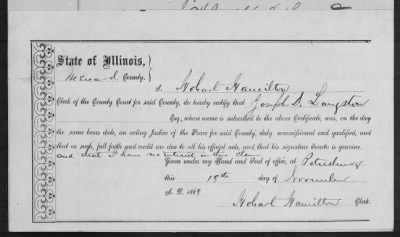 State of Illinois,
Menard County.
I, Hobart Hamilton
Clerk of the County Court for said County, do hereby certify that Joseph D. Langston
Esq., whose name is subscribed to the above Certificate, was, on the day
the same bears date, an acting Justice of the Peace for said County, duly commissioned and qualified, and
that as such, full faith and credit are due to all his official acts, and that his signature thereto is genuine.
and that I have no interest in this claim
Given under my Hand and Seal of office, at Petersburg
this 18th day November
A. D. 1869
Hobart Hamilton Clerk.